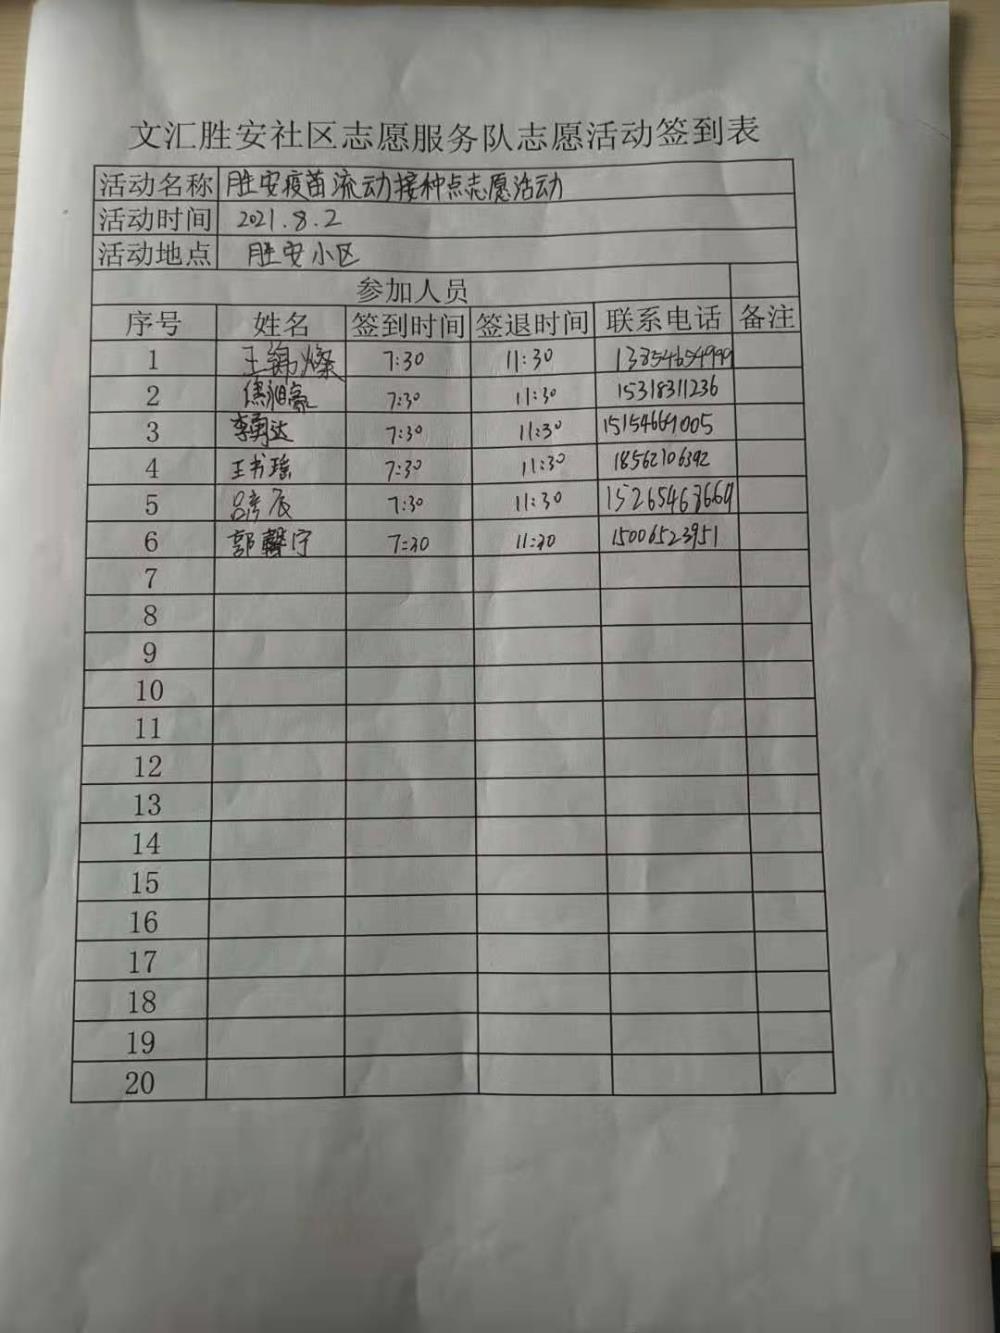 文汇胜安社区志愿服务队志愿活动签到表
活动名称 胜安疫苗流动接种点志愿活动
活动时间 2021.8.2
活动地点 胜安小区
参加人员
序号 姓名 签到时间 签退时间 联系电话 备注
1 王锦燦 7:30 11:30 13854654999
2 7:30 11:30 15318311236
3 李勇达 7:30 11:30 15154669005
4 王书瑶 7:30 11:30 18562106392
5 吕彦辰 7:30 11:30 15265463669
6 郭馨宁 7:30 11:30 15006523951
7
8
9
10
11
12
13
14
15
16
17
18
19
20